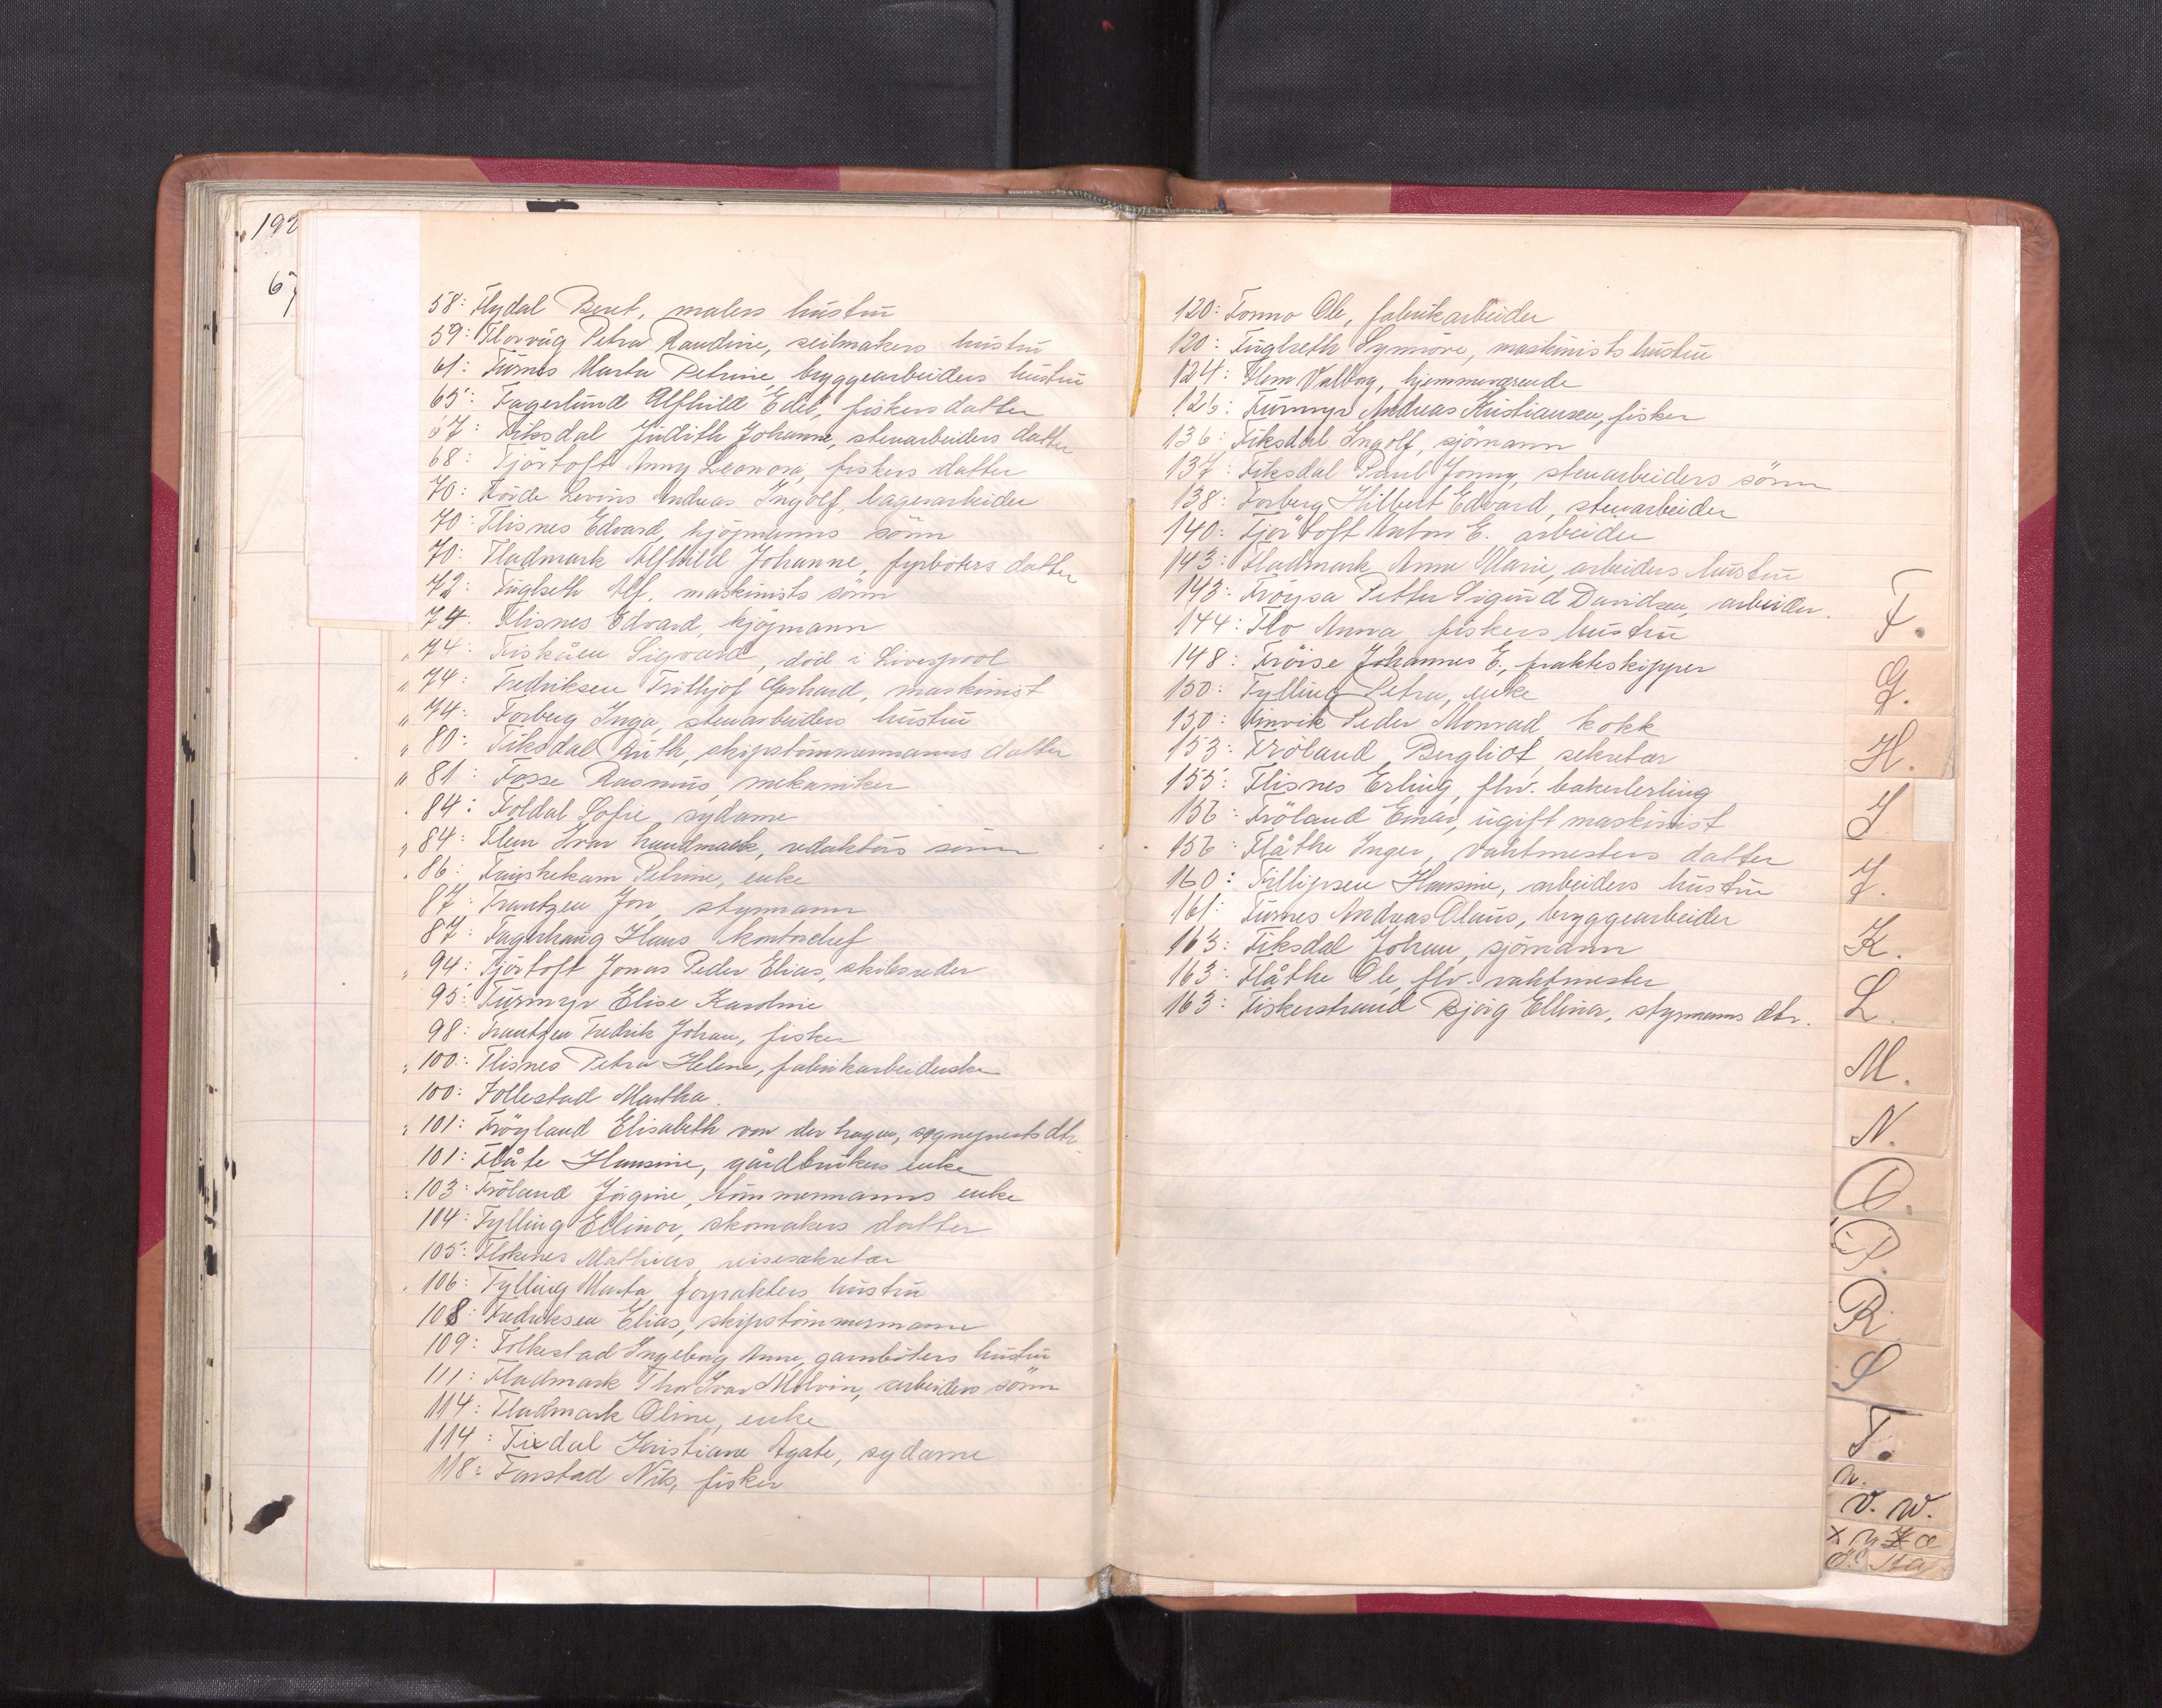 192
67
58: Flydal Beret, malers hustru
59: Florvåg Petra Raudine, seilmakers hustru
61: Furnes Marta Petrine, bryggearbeiders hustru
65: Fagerlund Alfhild Edel, fiskers datter
67: Fiksdal Judith Johanne, stuearbeiders datter
68: Fjörtoft Anny Leonora, fiskers datter
70: Förde Levins Andreas Ingolf, lagerarbeider
70: Flisnes Edvard, kjöpmanns sönn
70: Fladmark Alfhild Johanne, fyrböters datter
72: Fuglseth Alf, maskinists sönn
74: Flisnes Edvard, kjöpmann
" 74: Fiskåen Sigvard, död i Liverpool
" 74: Fredriksen Frithjof Gerhard, maskinist
" 74: Forberg Inga, stuearbeiders hustru
" 80: Fiksdal Ruth, skipstömmermanns datter
" 81: Fosse Rasmus, mekaniker
84: Foldal Sofie, sydame
" 84: Flem Ivar Landmark, redaktörs sönn
86: Petrine, enke
87: Frantzen Jon, styrmann
87: Fagerhaug Hans kontorchef
" 94: Fjörtoft Jonas Peder Elias, skibsreder
95: Furmyr Elise Karoline
98: Frantzen Fredrik Johan, fisker
" 100: Flisnes Petra Helene, fabrikarbeiderske
100: Follestad Martha.
" 101: Fröyland Elisabeth von der hagen, sogneprests dtr.
101: Flåte Hansine, gårdbrukers enke
103: Fröland Jörgine, tömmermanns enke
104: Fylling Ellinor, skomakers datter
105: Flokenes Mathias, reisesekretær
106: Fylling Marta, forpakters hustru
108: Fredriksen Elias, skipstömmermann
109: Folkestad Ingeborg Anne, garnböters hustru
111: Fladmark Thor Ivar Melvin, arbeiders sönn
114: Fladmark Oline, enke
114: Fixdal Kristiane Agate, sydame
118: Farstad Nils, fisker
120: Fonno Ole, fabrikarbeider
120: Fuglseth Synnöve, maskinists hustru
124: Flem Valborg, hjemmeværende
126: Furmyr Andreas Kristiansen, fisker
136: Fiksdal Ingolf, sjömann
137: Fiksdal Paul Jonny, stuearbeiders sönn
138: Forberg Hilbert Edvard, stuearbeider
140: Fjörtoft Anton E. arbeider
143: Fladmark Anna Marie, arbeiders hustru
143: Fröysa Petter Sigurd Davidsen, arbeider.
144: Flo Anna, fiskers hustru
148: Fröise Johannes E., frakteskipper
150: Fylling Petra, enke
150: Finvik Peder Monrad, kokk
153: Fröland Bergliot, sekretær
155: Flisnes Erling, fhv. bakerlerling
156: Fröland Einar, ugift maskinist
156: Flåthe Inger, vaktmesters datter
160: Fillipsen Hansine, arbeiders hustru
161: Furnes Andreas Olaus, bryggearbeider
163: Fiksdal Johan, sjömann
163: Flåthe Ole, fhv. vaktmester
163: Fiskerstrand Björg Ellinor, styrmanns dtr.
F.
G.
H.
I
J.
K.
L
M.
N.
O.
P.
R
S
T.
U.
V. W.
X Y Z Æ
Ö.